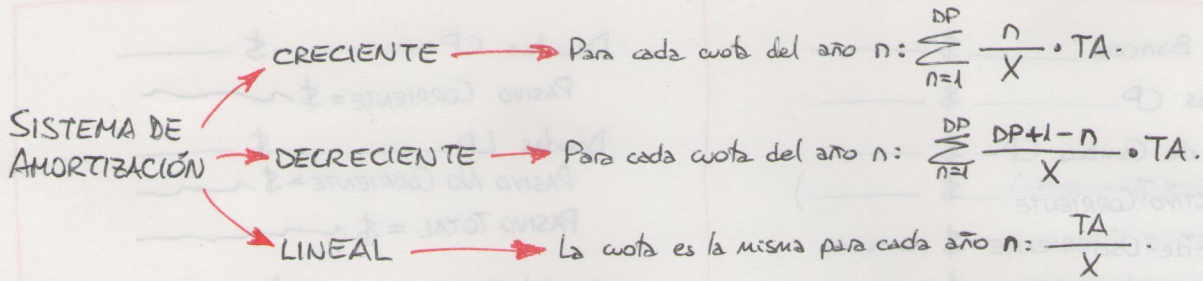 SISTEMA DE
AMORTIZACIÓN
CRECIENTE → Para cada cuota del año n: DP ∑ n=1 n/X • TA.
DECRECIENTE → Para cada cuota del año n: DP ∑ n=1 DP+1-n/X • TA.
LINEAL → La cuota es la misma para cada año n: TA/X.